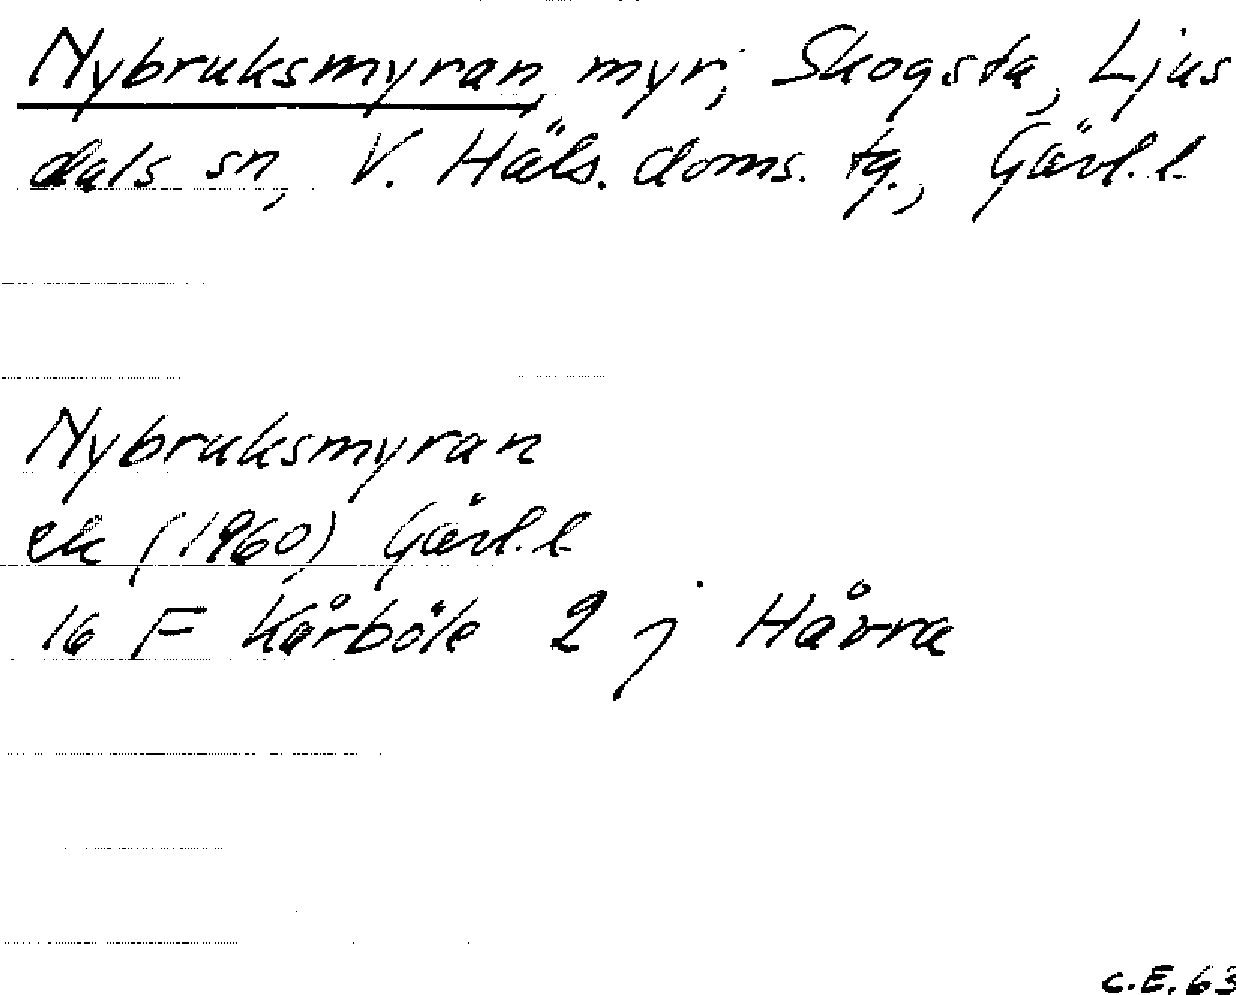 Nybruksmyran, myr, Skogsta, Ljus
dals sn, V. Häls. doms. tg., Gävl. l.
Nybruksmyran
ek (1960) Gävl. l.
16 F Kårböle 2 j Håvra
C.E. 63